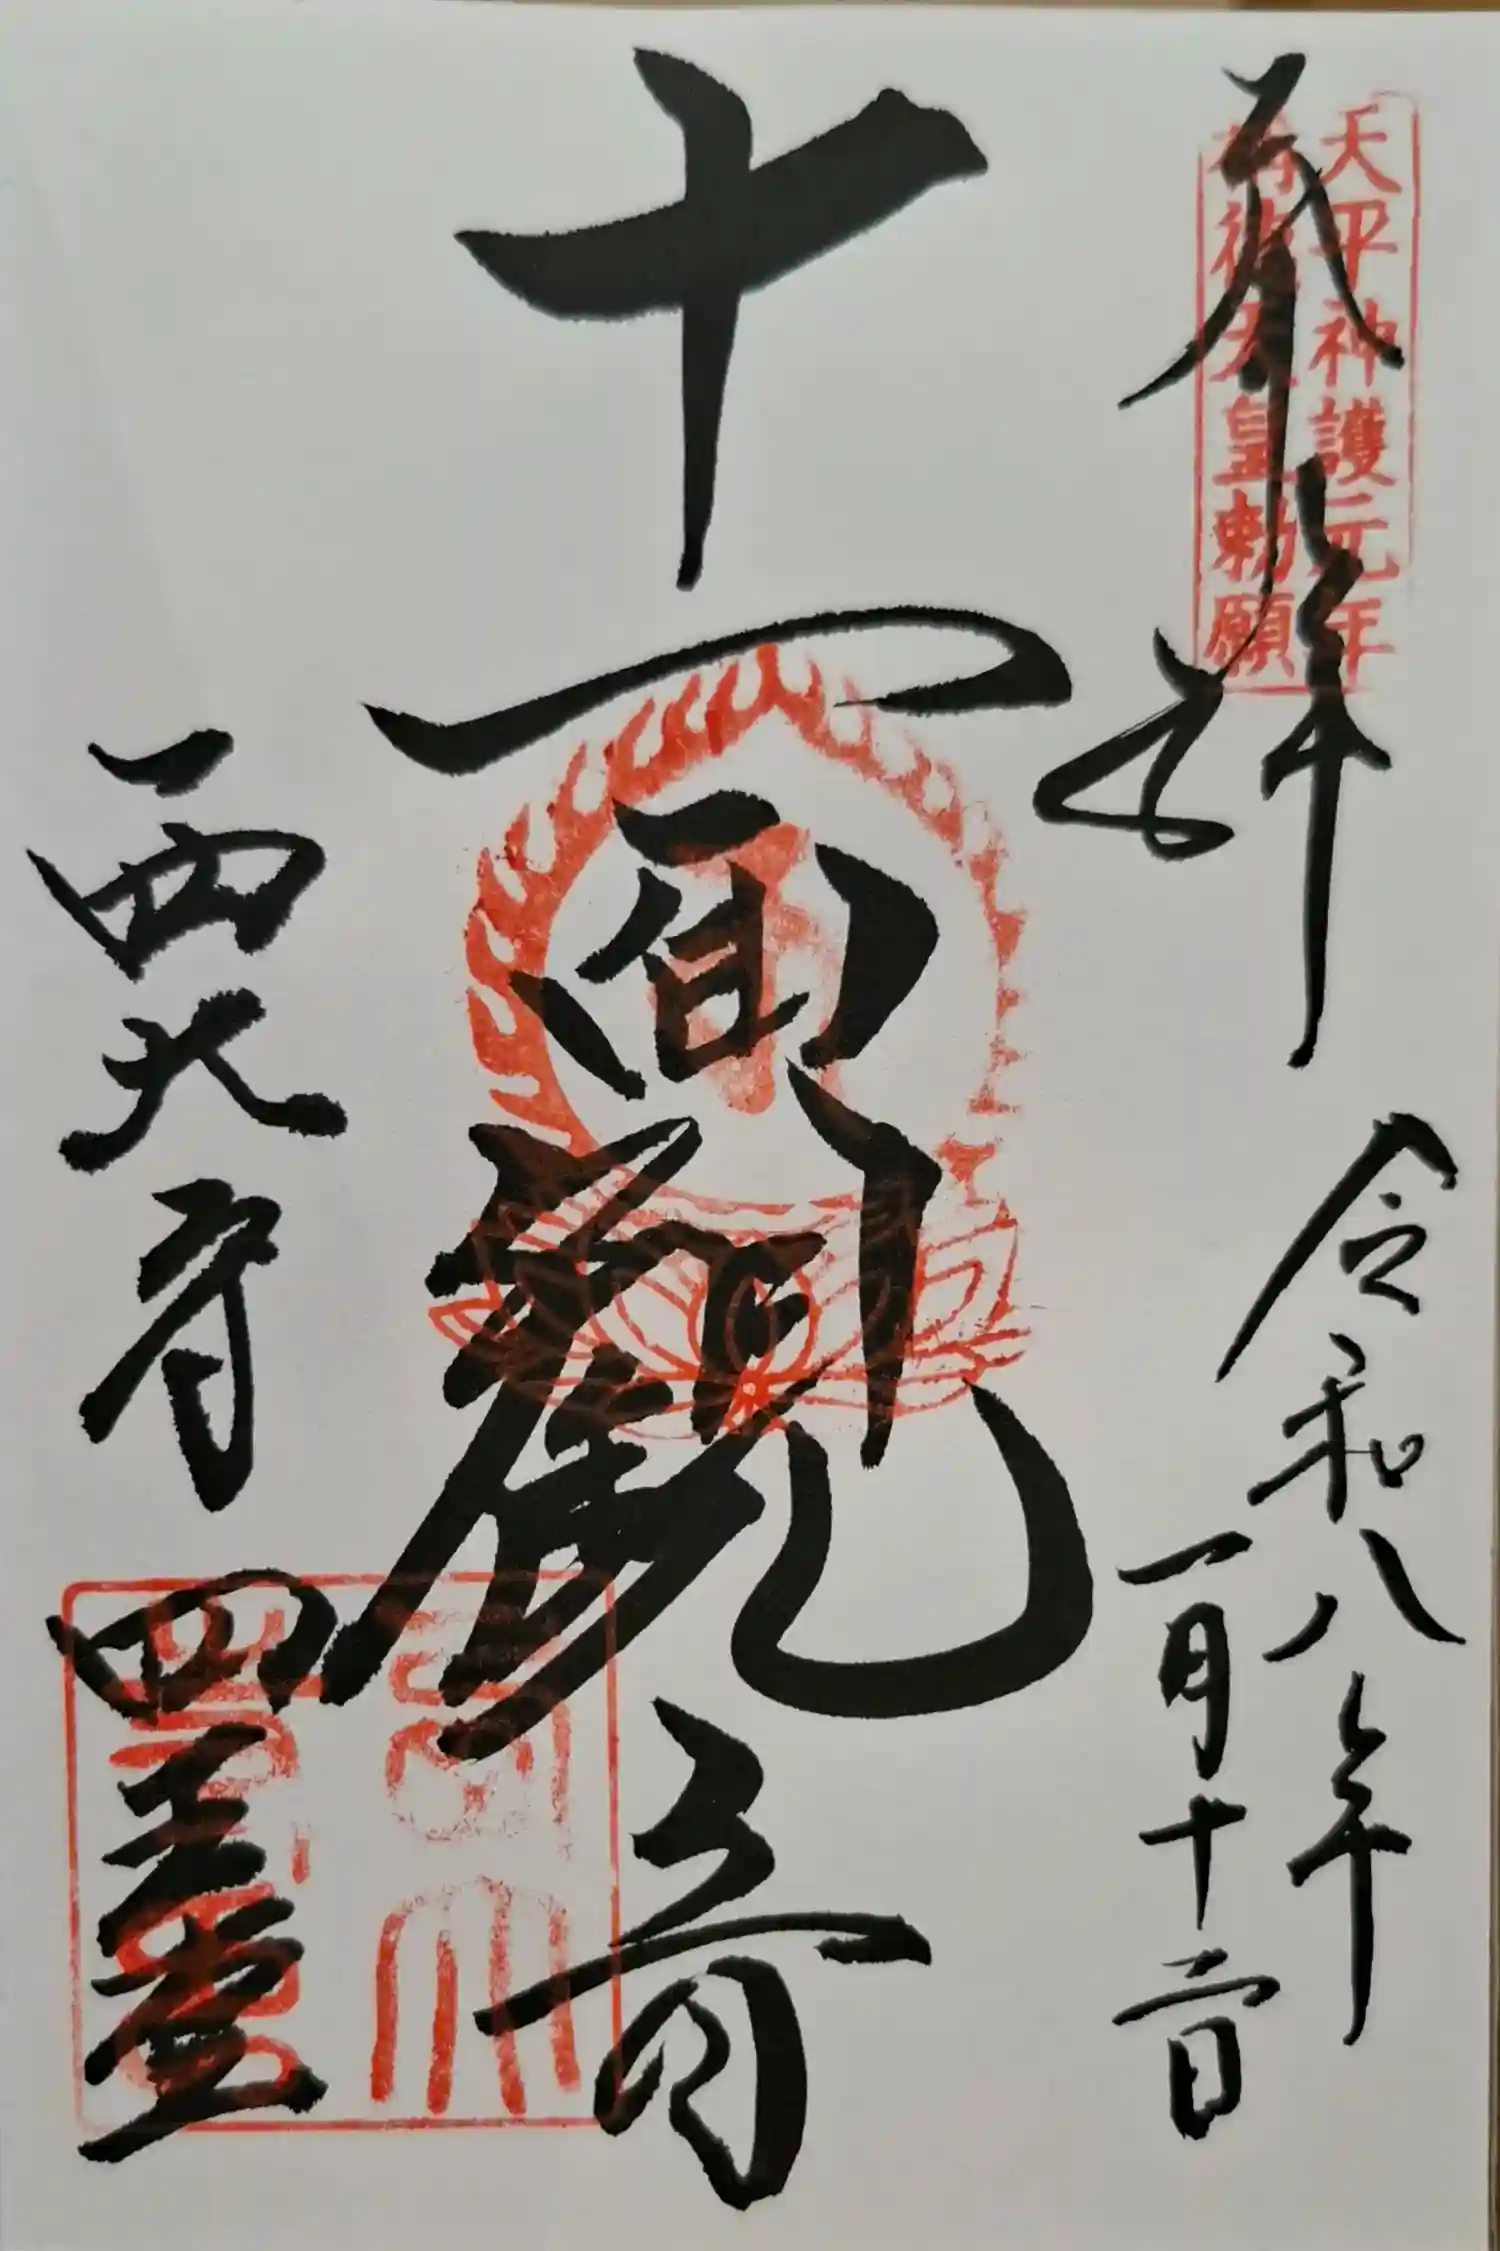 奉拝
天平神護元年
称徳天皇勅願
令和八年
一月十二日
十一面観音
西大寺
四王堂